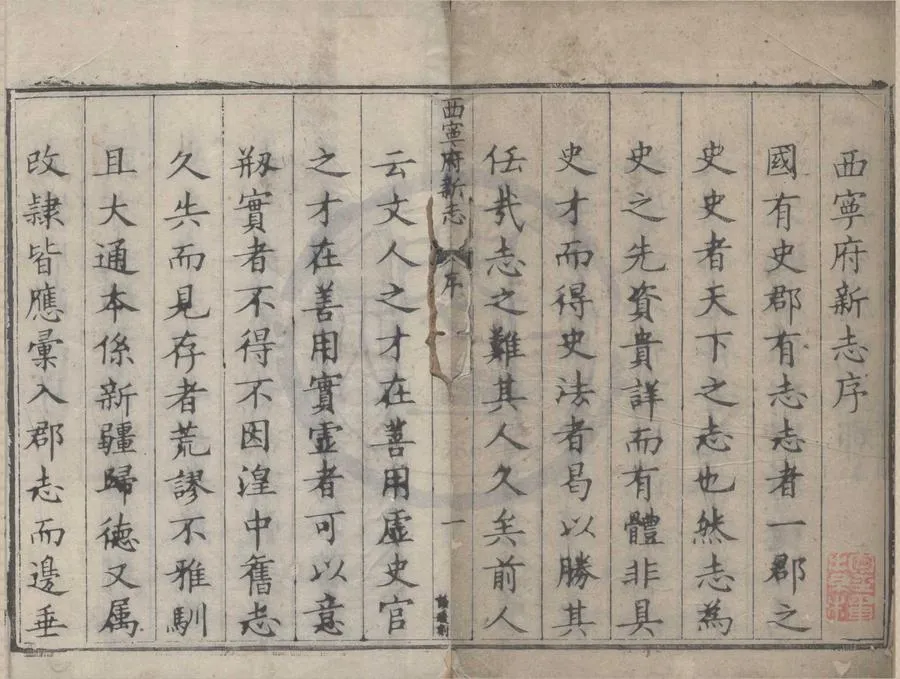 西寧府新志序
國有史郡有志志者一郡之
史史者天下之志也然志為
史之先資貴詳而有體非具
史才而得史法者曷以勝其
任㢤志之難其人久矣前人
西寧府新志 序 一
云文人之才在善用虛史官
之才在善用實虛者可以意
剏實者不得不因湟中舊志
久失而見存者荒謬不雅馴
且大通本係新疆歸德又属
改隸皆應彙入郡志而邊垂